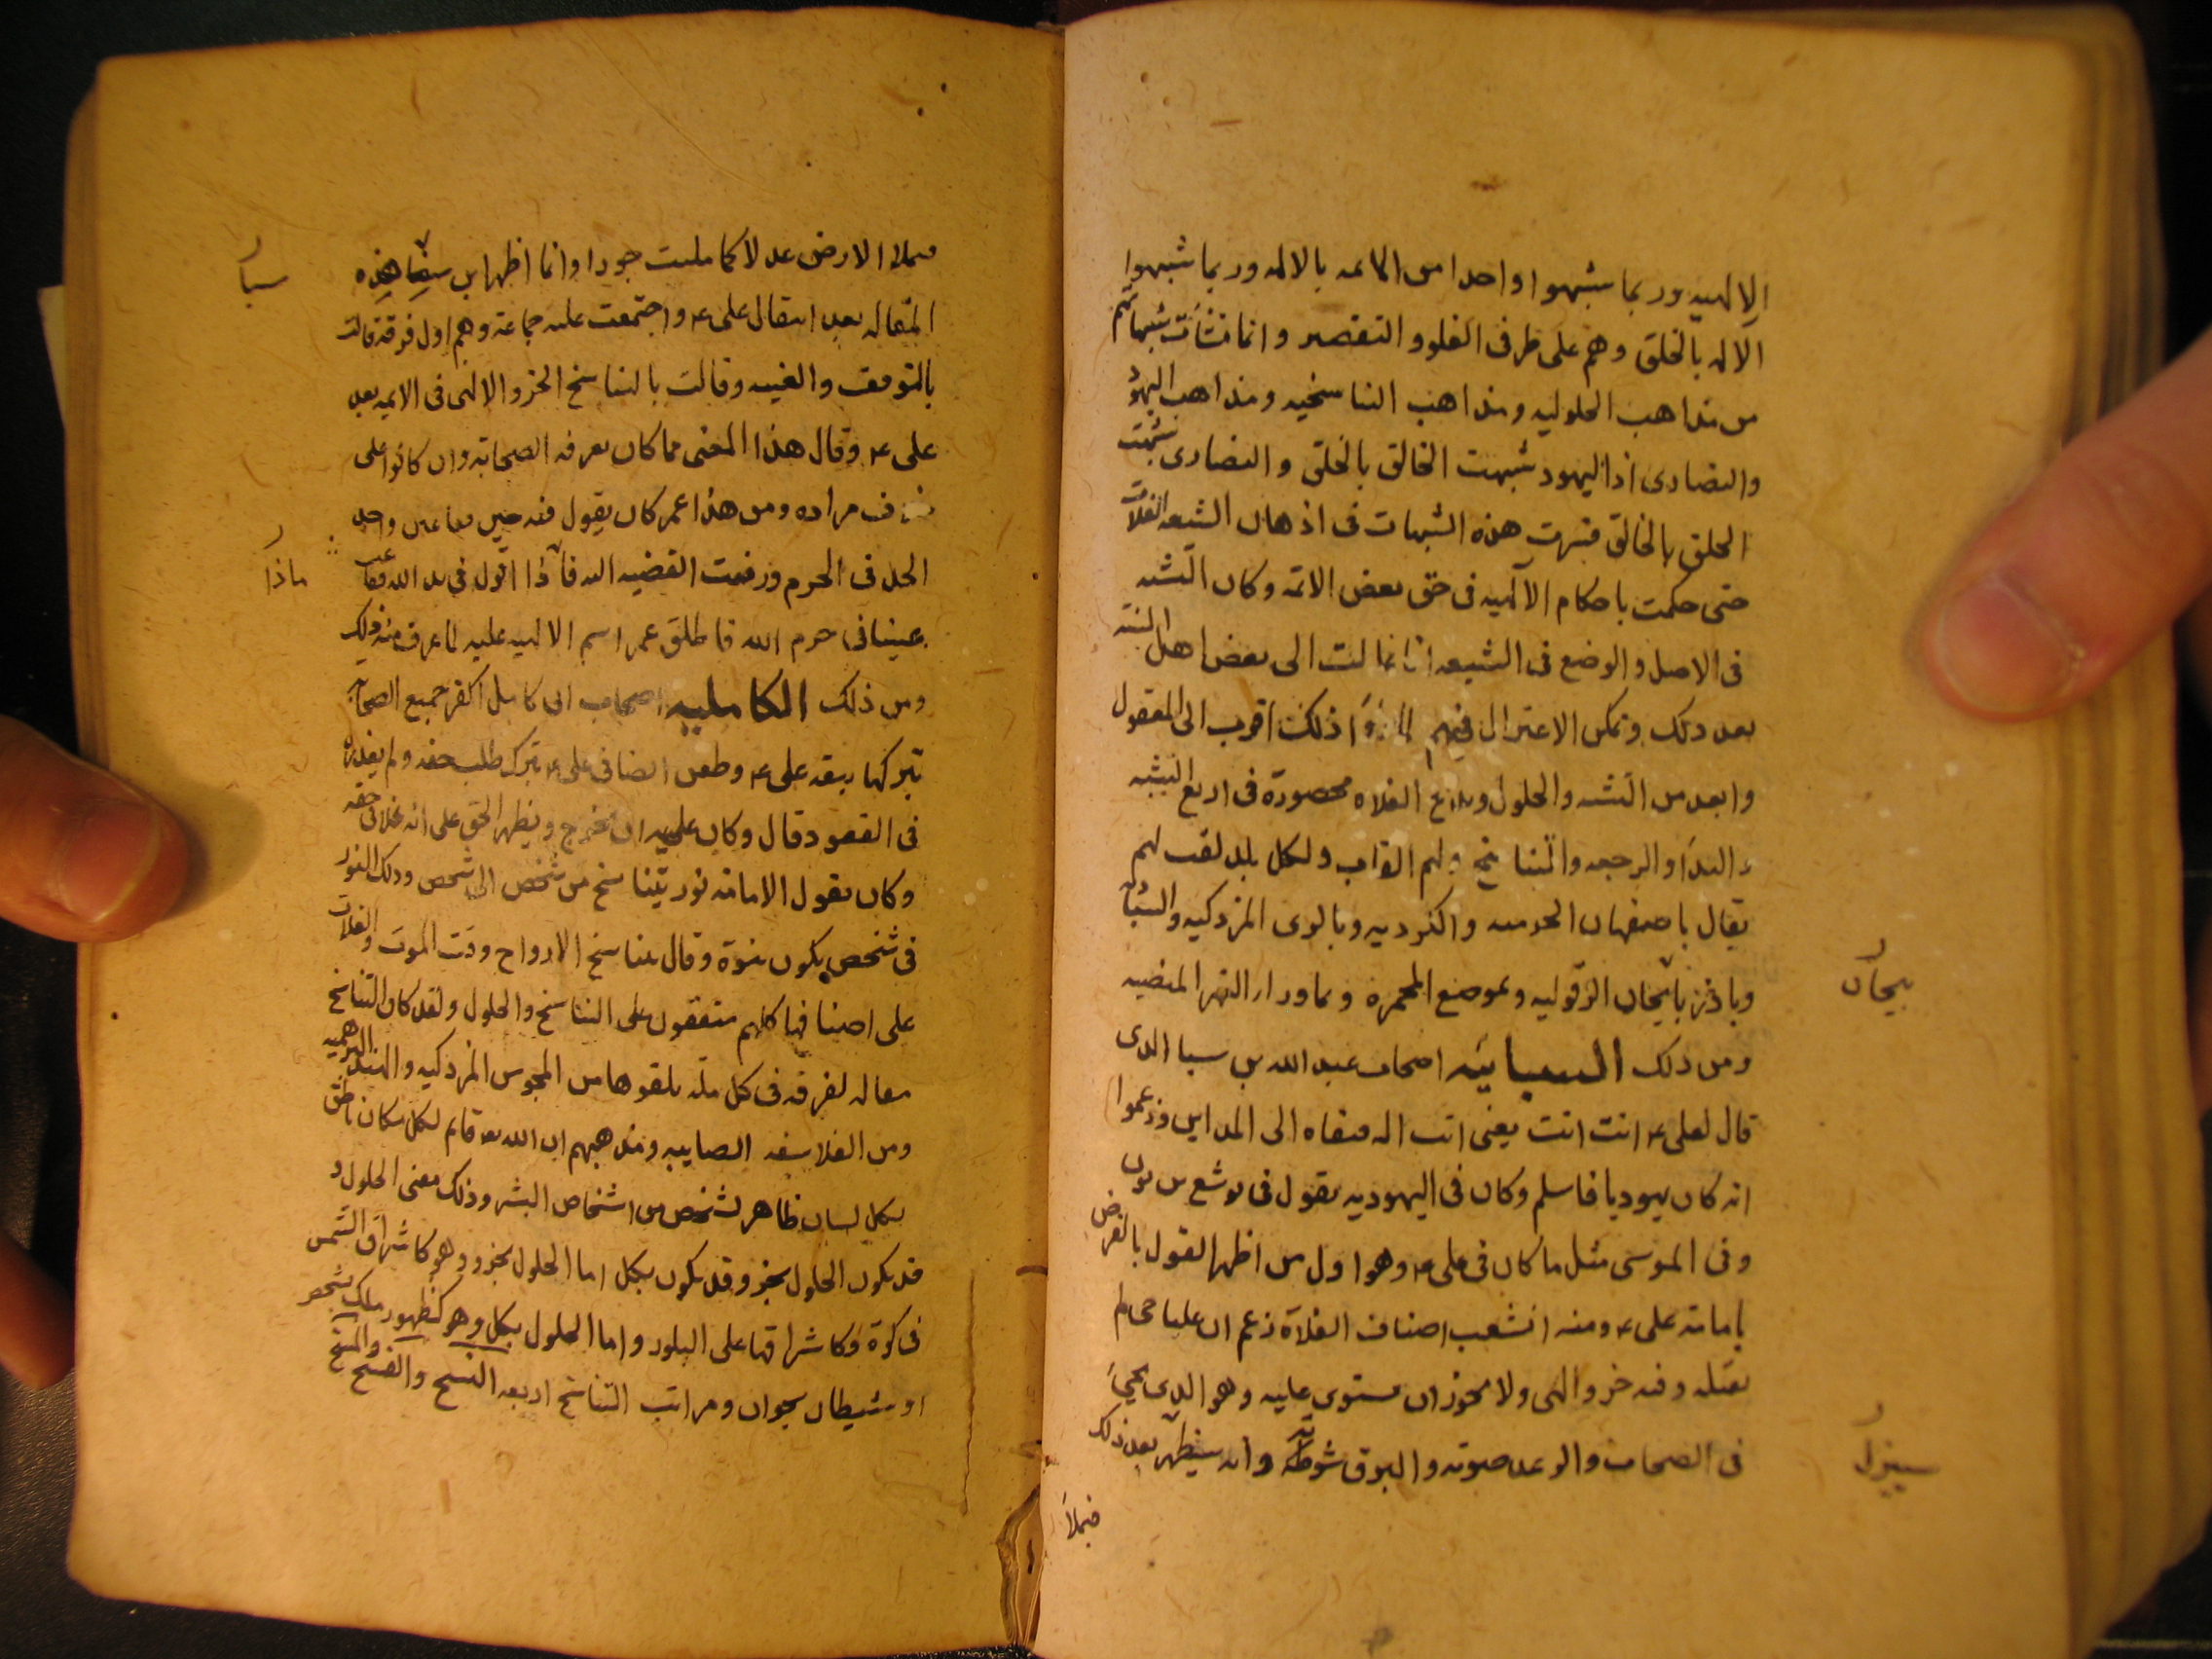 الالهيه وربما شبهوا واحدا من الائمه بالاله وربما شبهوا
الاله بالخلق وهم على طرفى الغلو والتقصير وانما نشأت شبهاتهم
من مذاهب الحلوليه ومذاهب التناسخيه ومذاهب اليهود
والنصارى اذ اليهود شبهت الخالق بالخلق والنصارى شبهت
الخلق بالخالق فسرت هذه الشبهات فى اذهان الشيعه الغلات
حتى حكمت باحكام الآلهيه فى حق بعض الائمة وكان التشبيه
فى الاصل والوضع فى الشيعه انما عالت الى بعض اهل السنة
بعد ذلك وتمكن الاعتزال فيهم لما رؤا ذلك اقرب الى المعقول
وابعد من التشبيه والحلول وبدع الغلاه محصورة فى اربع التشبيه
والبدا والرجعه والتناسخ ولهم القاب ولكل بلد لقب لهم
يقال باصفهان الحرميه والكوديه وبالرى المزدكيه والسنباديه
وباذربايجان الذقوليه وبموضع المحمره وبماورار النهر المبيضيه
بيجان
ومن ذلك السبائيه اصحاب عبد الله بن سبا الذى
قال لعلى ع انت انت يعنى انت اله فنفاه الى المداين وزعموا
انه كان يهوديا فاسلم وكان فى اليهوديه يقول فى يوشع بن نون
وفى الموسى مثل ما كان فى على ع وهو اول من اظهر القول بالفرض
بامامة على ع ومنه انشعب اصناف الغلاة زعم ان عليا حى لم
يقتله وفيه جزو الهى ولا يجوز ان يستولى عليه وهو الذى يجئ
فى السحاب والرعد صوته والبرق سوطه وانه سينظهر بعد ذلك
سينزل
فيملأ
فيملا الارض عدلا كما ملئت جورا وانما اظهر ابن سبا هذه
سبا
المقاله بعد انتقال على ع واجتمعت عليه جماعة وهم اول فرقة قالت
بالتوقف والغيبه وقالت بالتناسخ الجزو الالهى فى الايمه بعد
على ع وقال هذا المعنى مما كان يعرفه الصحابة وان كانوا على
خلاف مراده ومن هذا عمر كان يقول فيه حين فقا عين واحد
الحل فى الحرم ورفعت القضيه اليه فآذا اقول فى يد الله فقات
ماذا
عينا فى حرم الله فاطلق عمر اسم الالهيه عليه لما عرف منه ذلك
ومن ذلك الكامليه اصحاب ابى كامل اكفر جميع الصحابه
بتركها بيعه على ع وطعن ايضا فى على ع بترك طلب حقه ولم يعذره
فى القعود قال وكان عليه ان يخرج ويظهر الحق على انه غلا فى حقه
وكان يقول الامامة نور يتناسخ من شخص الى شخص وذلك النور
فى شخص يكون نبوة وقال بتناسخ الارواح وقت الموت والغلات
على اصنافها كلهم متفقون على التناسخ والحلول ولقد كان التناسخ
مقاله لفرقه فى كل ملة تلقوها من المجوس المزدكيه والهند البرهميه
ومن الفلاسفه الصابيه ومذهبهم ان الله تعه قايم لكل مكان ناطق
بكل لسان ظاهر لشخص من اشخاص البشر وذلك معنى الحلول و
قد يكون الحلول بجزو وقد يكون بكل اما الحلول بجزو وهو كاشراق الشمس
فى كوة وكاشراقها على البلور واما الحلول بكل وهو كظهور ملك بشخص
او شيطان بحيوان ومراتب التناسخ اربعه النسخ والفسخ والمسخ